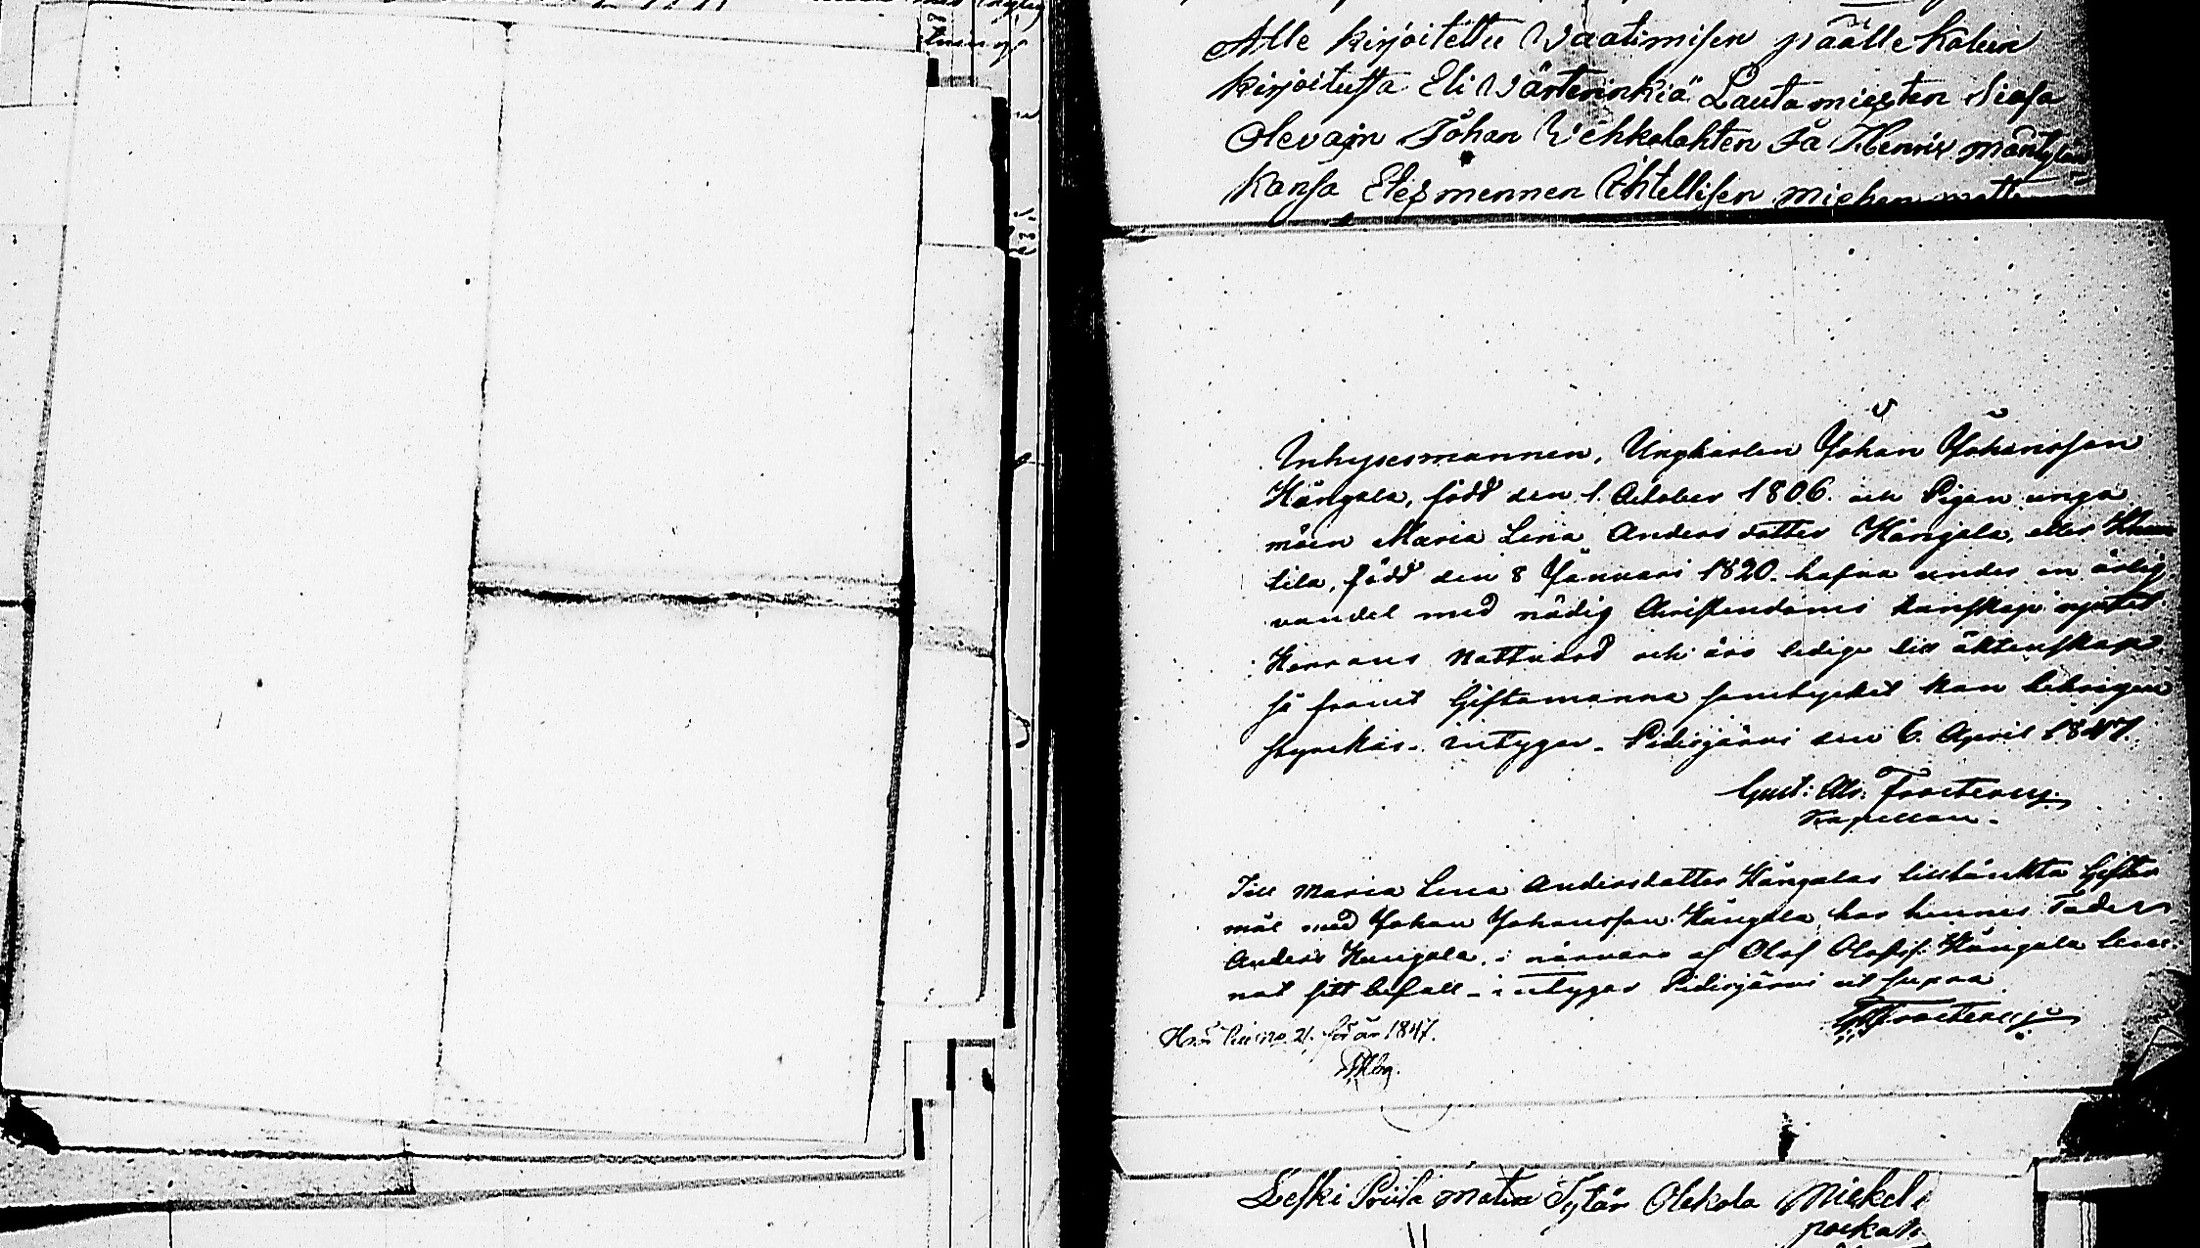 Alle kirjoitettu Waatimisen päälle Kalun
kirjoitusta Eli Wärterinkiä Lautamiesten Siasa
Olevain Johan Vehkalahten Ja Henrik mäntylän
kansa Etesmennen Ahtellisen miehen
Inhysesmannen, Ungkarlen Johan Johansson
Kångala, född den 1. October 1806. och Pigan unga
möen Maria Lena Anders dotter Kångala, eller
tila, född den 8 Januari 1820. hafva under en ärlig
vandel med nödig Christendoms kunskap njutit
Herrans Nattvard och äro ledige till äktenskap
så framt Giftomanna samtycket kan behörigen
styrkas. intygar. Pidisjärvi den 6. April 1847.
Gust: Alr.
Kapellan.
Till Maria Lena Andersdotter Kångalas tilltänkta Gifter
mål med Johan Johansson Kångala, har hennes Fader
Anders Kangala, i närvaro af Olof Olofss: Kångala lem
nat sitt bifall - intygar Pidisjärvi ut supra.
för år 1847.
Leski Priita matin Tytär Olekola Mickel
poekan